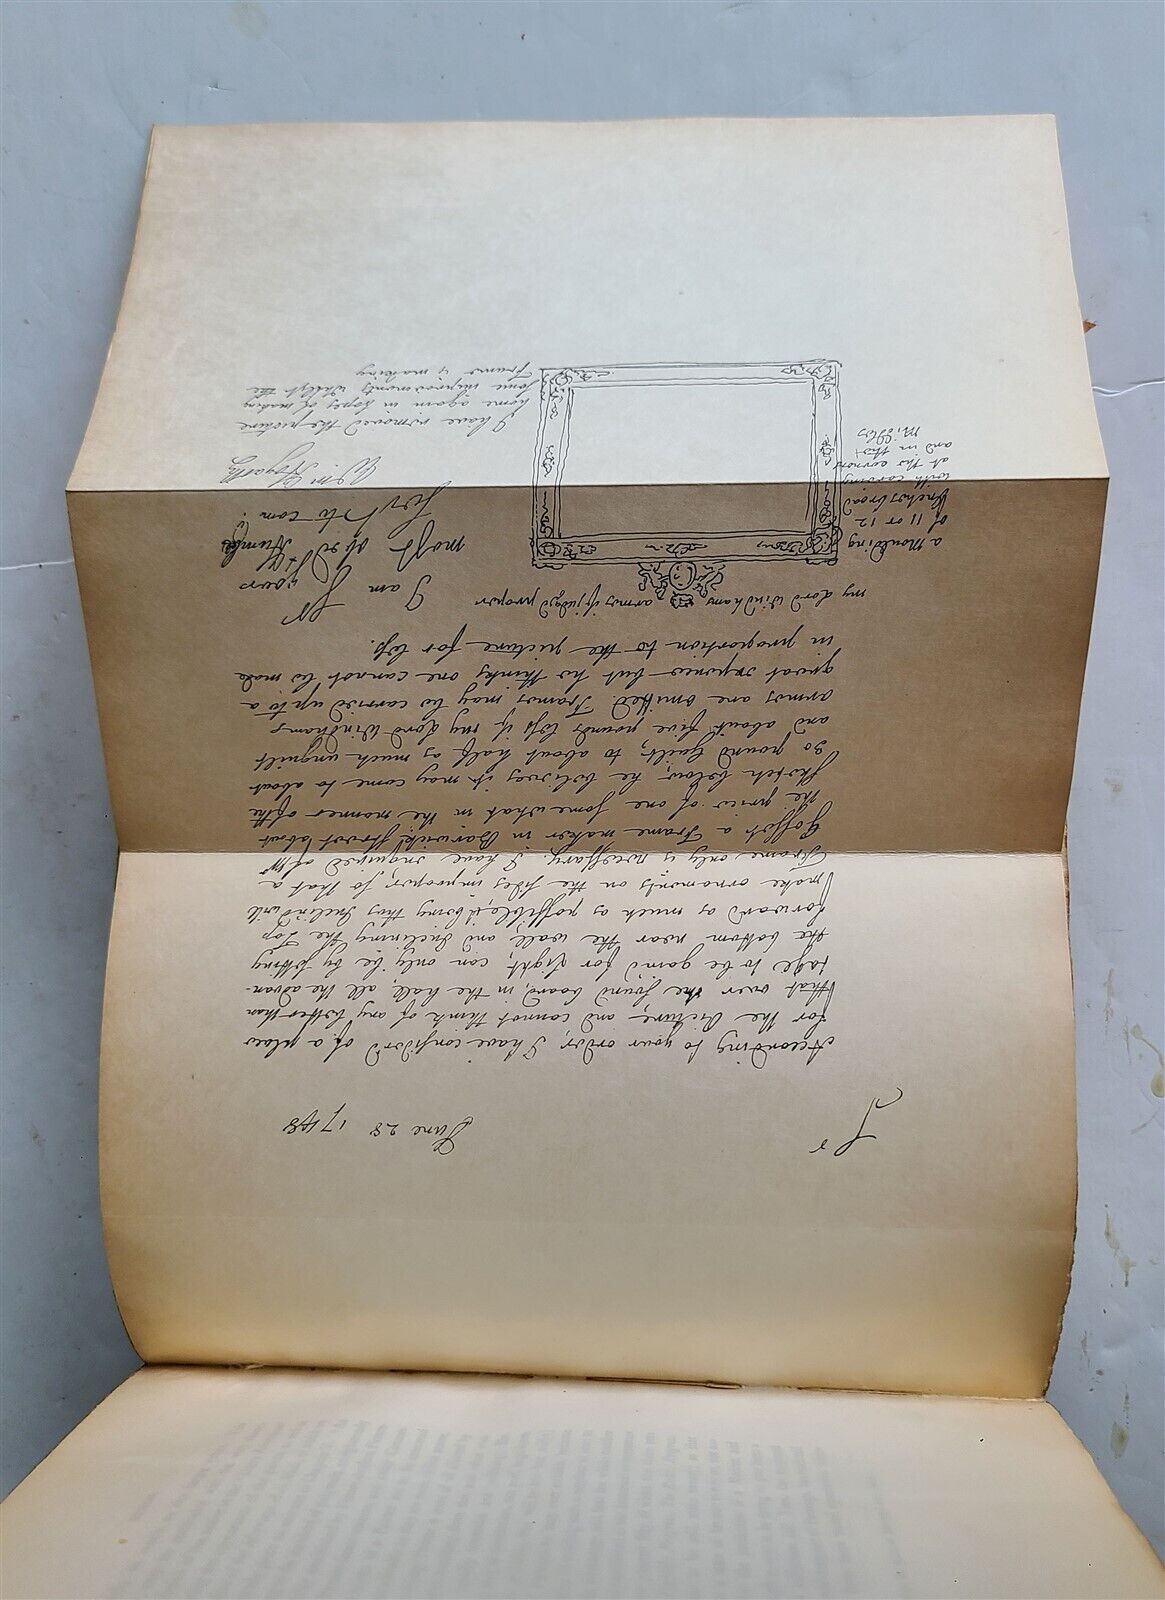 Sr
June 28 1748
According to your order, I have consider'd of a place
for the Picture, and cannot think of any better than
that over the sound board, in the hall, all the advan-
tage to be gain'd for Light, can only be by setting
the bottom near the wall and Inclining the Top
forward as much as possible, it being thus Inclind will
make ornaments on the sides improper, so that a
Frame only is necessary. I have inquired of Mr
Gosset a Frame maker in Barwick Street about
the price of one somewhat in the manner of the
Sketch below, he believes it may come to about
30 pound Guilt, to about half as much unguilt
and about five pounds less if my Lord Windhams
armes are omitted. Frames may be carried up to a
great expence but he thinks one cannot be made
in proportion to the picture for less.
my Lord Windhams armes if judged proper
I am
Sr
yours
most obedt Humble
Servt to com:
Wm Hogarth
a moulding
of 11 or 12
Inches broad
with carving
at the corners
and in the
Midles
I have removed the picture
home again in hopes of making
some improvements whilst the
Frame is making